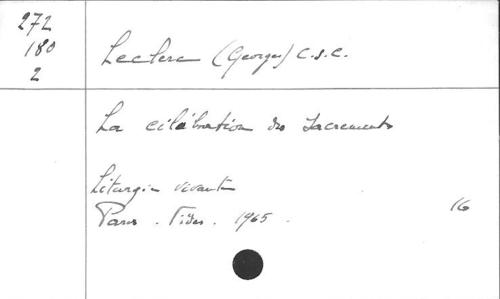 272
180
2
Leclerc (Georges) C.S.C.
La célébration des Sacrements
Liturgie vivante
Paris. Fides. 1965.
16